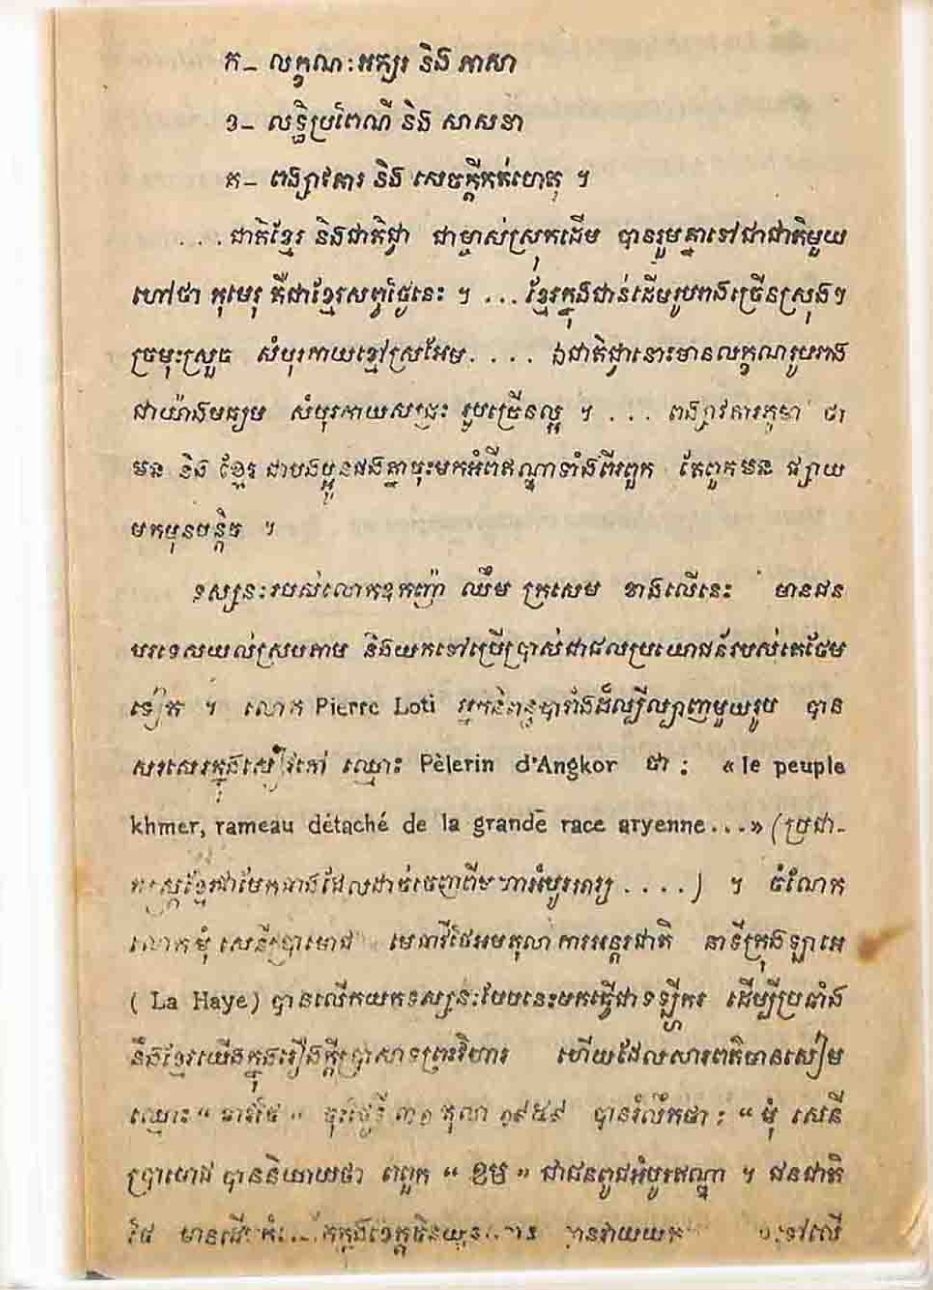 ក- លក្ខណៈអក្សរ និង ភាសា
ខ- លទ្ធិប្រពៃណី និង សាសនា
គ- ពង្សាវតារ និង សេចក្តីកត់ហេតុ ។
...ជាតិខ្មែរ និងជាតិជ្វា ជាម្ចាស់ស្រុកដើម បានរួមគ្នាទៅជាជាតិមួយ
ហៅថា កុមេរុ គឺជាខ្មែរសព្វថ្ងៃនេះ ។ ...ខ្មែរក្នុងជាន់ដើមរូបរាងច្រើនស្រុងៗ
ច្រមុះស្រួច សំបុរកាយខ្មៅស្រអែម.... ឯជាតិជ្វានោះមានលក្ខណរូបរាង
ជាយ៉ាងមធ្យម សំបុរកាយសជ្រះ រូបច្រើនល្អ ។ ... ពង្សាវតារភូមា ថា
មន និង ខ្មែរ ជាបងប្អូនផងគ្នាចុះមកអំពីឥណ្ឌាទាំងពីរពួក តែពួកមន ផ្សាយ
មកមុនបន្តិច ។
ទស្សនៈរបស់លោកឧកញ៉ា ឈឹម ក្រសេម ខាងលើនេះ មានជន
បរទេសយល់ស្របតាម និងយកទៅប្រើប្រាស់ជាផលប្រយោជន៍របស់គេថែម
ទៀត ។ លោក Pierre Loti អ្នកនិពន្ធបារាំងដ៏ល្បីល្បាញមួយរូប បាន
សរសេរក្នុងសៀវភៅ ឈ្មោះ Pèlerin d'Angkor ថា : «le peuple
khmer, rameau détaché de la grande race aryenne...» (ប្រជា-
រាស្ត្រខ្មែរជាមែកធាងដែលដាច់ចេញពីមហាអំបូរអារ្យ ....) ។ ចំណែក
លោកមុំ សេនីប្រាមោជ មេធាវីថៃអមតុលាការអន្តរជាតិ នាទីក្រុងឡាអេ
( La Haye) បានលើកយកទស្សនៈបែបនេះមកធ្វើជាទឡ្ហីករ ដើម្បីប្រឆាំង
នឹងខ្មែរយើងក្នុងរឿងក្តីប្រាសាទព្រះវិហារ ហើយដែលសារពត៌មានសៀម
ឈ្មោះ “ សារថៃ ” ចុះថ្ងៃទី ៣១ តុលា ១៩៥៩ បានរំលឹកថា : “ មុំ សេនី
ប្រាមោជ បាននិយាយថា ពាពួក “ ខម ” ជាជនពូជអំបូរឥណ្ឌា ។ ជនជាតិ
ថៃ មានដើមកំ ក្នុងខេត្តចិនយូន បានវាយយក ទៅលើ